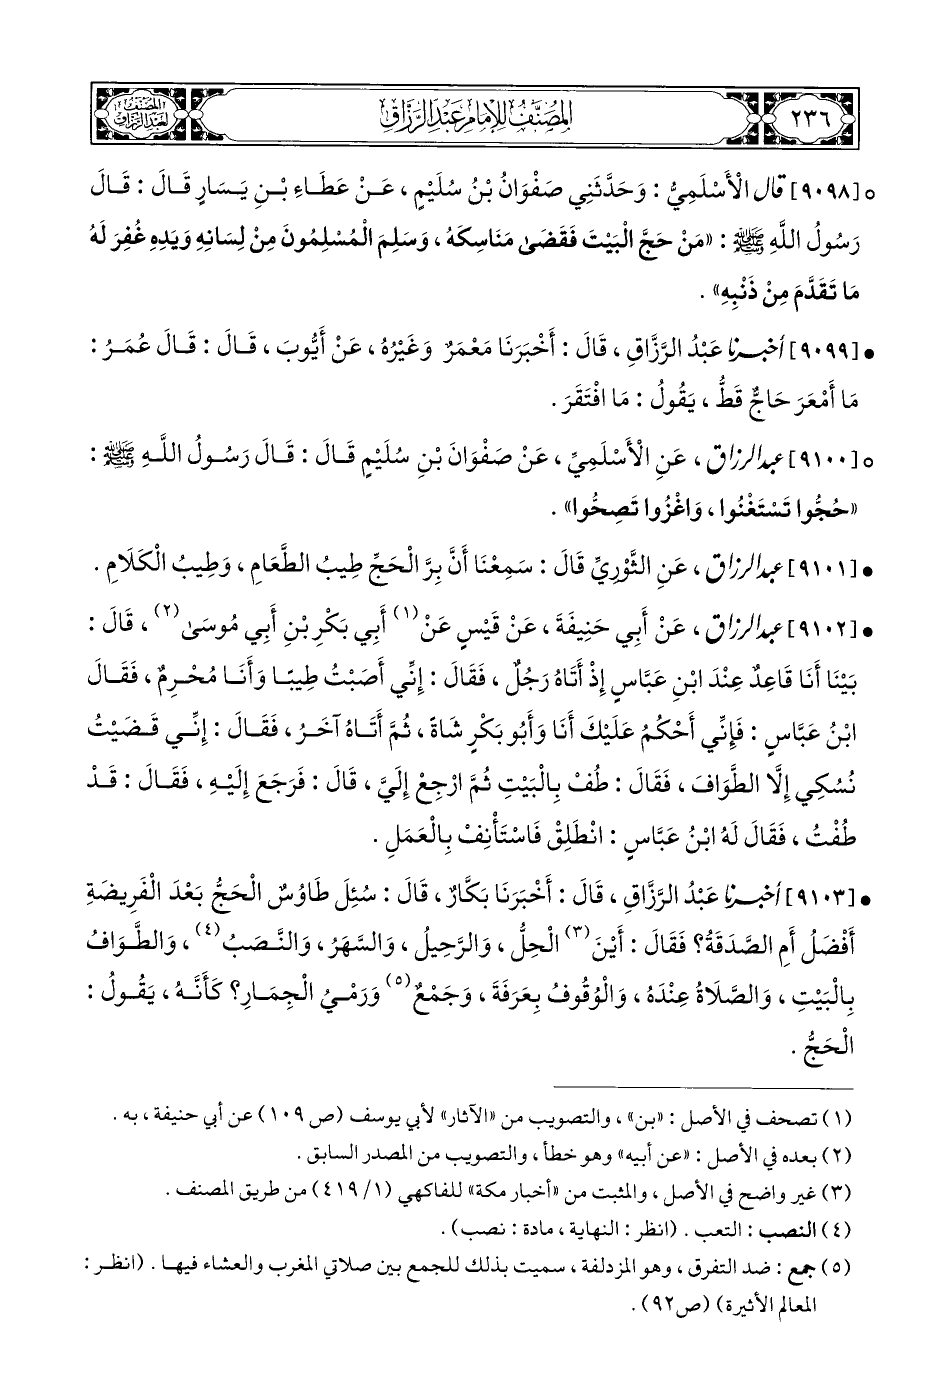 ٢٣٦
المصنف للإمام عبد الرزاق
المصنف لعبد الرزاق
○ [٩٠٩٨] قال الْأَسْلَمِيُّ : وَحَدَّثَنِي صَفْوَانُ بْنُ سُلَيْمٍ ، عَنْ عَطَاءِ بْنِ يَسَارٍ قَالَ : قَالَ
رَسُولُ اللَّهِ ﷺ : «مَنْ حَجَّ الْبَيْتَ فَقَضَىٰ مَنَاسِكَهُ ، وَسَلِمَ الْمُسْلِمُونَ مِنْ لِسَانِهِ وَيَدِهِ غُفِرَ لَهُ
مَا تَقَدَّمَ مِنْ ذَنْبِهِ» .
• [٩٠٩٩] أخبرنا عَبْدُ الرَّزَّاقِ ، قَالَ : أَخْبَرَنَا مَعْمَرٌ وَغَيْرُهُ ، عَنْ أَيُّوبَ ، قَالَ : قَالَ عُمَرُ :
مَا أَمْعَرَ حَاجٌّ قَطُّ ، يَقُولُ : مَا افْتَقَرَ .
○ [٩١٠٠] عبد الرزاق ، عَنِ الْأَسْلَمِيِّ ، عَنْ صَفْوَانَ بْنِ سُلَيْمٍ قَالَ : قَالَ رَسُولُ اللَّهِ ﷺ :
«حُجُّوا تَسْتَغْنُوا ، وَاغْزُوا تَصِحُّوا» .
• [٩١٠١] عبد الرزاق ، عَنِ الثَّوْرِيِّ قَالَ : سَمِعْنَا أَنَّ بِرَّ الْحَجِّ طِيبُ الطَّعَامِ ، وَطِيبُ الْكَلَامِ .
• [٩١٠٢] عبد الرزاق ، عَنْ أَبِي حَنِيفَةَ ، عَنْ قَيْسٍ عَنْ(١) أَبِي بَكْرِ بْنِ أَبِي مُوسَىٰ(٢) ، قَالَ :
بَيْنَا أَنَا قَاعِدٌ عِنْدَ ابْنِ عَبَّاسٍ إِذْ أَتَاهُ رَجُلٌ ، فَقَالَ : إِنِّي أَصَبْتُ طِيبًا وَأَنَا مُحْرِمٌ ، فَقَالَ
ابْنُ عَبَّاسٍ : فَإِنِّي أَحْكُمُ عَلَيْكَ أَنَا وَأَبُو بَكْرٍ شَاةً ، ثُمَّ أَتَاهُ آخَرُ ، فَقَالَ : إِنِّي قَضَيْتُ
نُسُكِي إِلَّا الطَّوَافَ ، فَقَالَ : طُفْ بِالْبَيْتِ ثُمَّ ارْجِعْ إِلَيَّ ، قَالَ : فَرَجَعَ إِلَيْهِ ، فَقَالَ : قَدْ
طُفْتُ ، فَقَالَ لَهُ ابْنُ عَبَّاسٍ : انْطَلِقْ فَاسْتَأْنِفْ بِالْعَمَلِ .
• [٩١٠٣] أخبرنا عَبْدُ الرَّزَّاقِ ، قَالَ : أَخْبَرَنَا بَكَّارٌ ، قَالَ : سُئِلَ طَاوُسٌ الْحَجُّ بَعْدَ الْفَرِيضَةِ
أَفْضَلُ أَمِ الصَّدَقَةُ؟ فَقَالَ : أَيْنَ(٣) الْحِلُّ ، وَالرَّحِيلُ ، وَالسَّهَرُ ، وَالنَّصَبُ(٤) ، وَالطَّوَافُ
بِالْبَيْتِ ، وَالصَّلَاةُ عِنْدَهُ ، وَالْوُقُوفُ بِعَرَفَةَ ، وَجَمْعٌ(٥) وَرَمْيُ الْجِمَارِ؟ كَأَنَّهُ ، يَقُولُ :
الْحَجُّ .
(١) تصحف في الأصل : «بن» ، والتصويب من «الآثار» لأبي يوسف (ص ١٠٩) عن أبي حنيفة ، به .
(٢) بعده في الأصل : «عن أبيه» وهو خطأ ، والتصويب من المصدر السابق .
(٣) غير واضح في الأصل ، والمثبت من «أخبار مكة» للفاكهي (١/ ٤١٩) من طريق المصنف .
(٤) النصب : التعب . (انظر : النهاية ، مادة : نصب) .
(٥) جمع : ضد التفرق ، وهو المزدلفة ، سميت بذلك للجمع بين صلاتي المغرب والعشاء فيها . (انظر :
المعالم الأثيرة) (ص٩٢) .